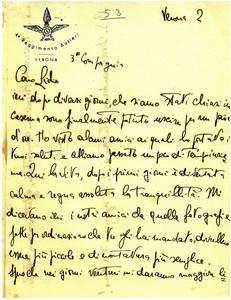 53
Verona 2
4° Reggimento Autieri
VERONA
3ª Compagnia
Caro
dopo diversi giorni, che siamo stati chiusi in
caserma sono finalmente potuto uscire per un paio
d'ore. Ho visto alcuni amici ai quali ho portato i
tuoi saluti e abbiamo passato un po' di tempo insieme
ma la vita, dopo i primi giorni è diventata
calma e regna assoluta la tranquillità. Mi
dicevano i nostri amici che quelle fotografie
fatte per ordinazione che tu gli hai mandato, dovrebbero
essere più piccole e di montatura più semplice.
Spero che nei giorni venturi mi daranno maggiore li